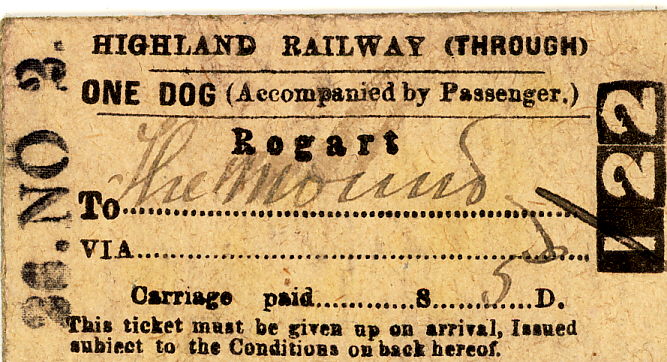 HIGHLAND RAILWAY (THROUGH)
ONE DOG (Accompanied by Passenger.)
Rogart
To The Mound
VIA
Carriage paid............S. 5 ............D.
This ticket must be given up on arrival, Issued
subject to the Conditions on back hereof.
122
NO 3.